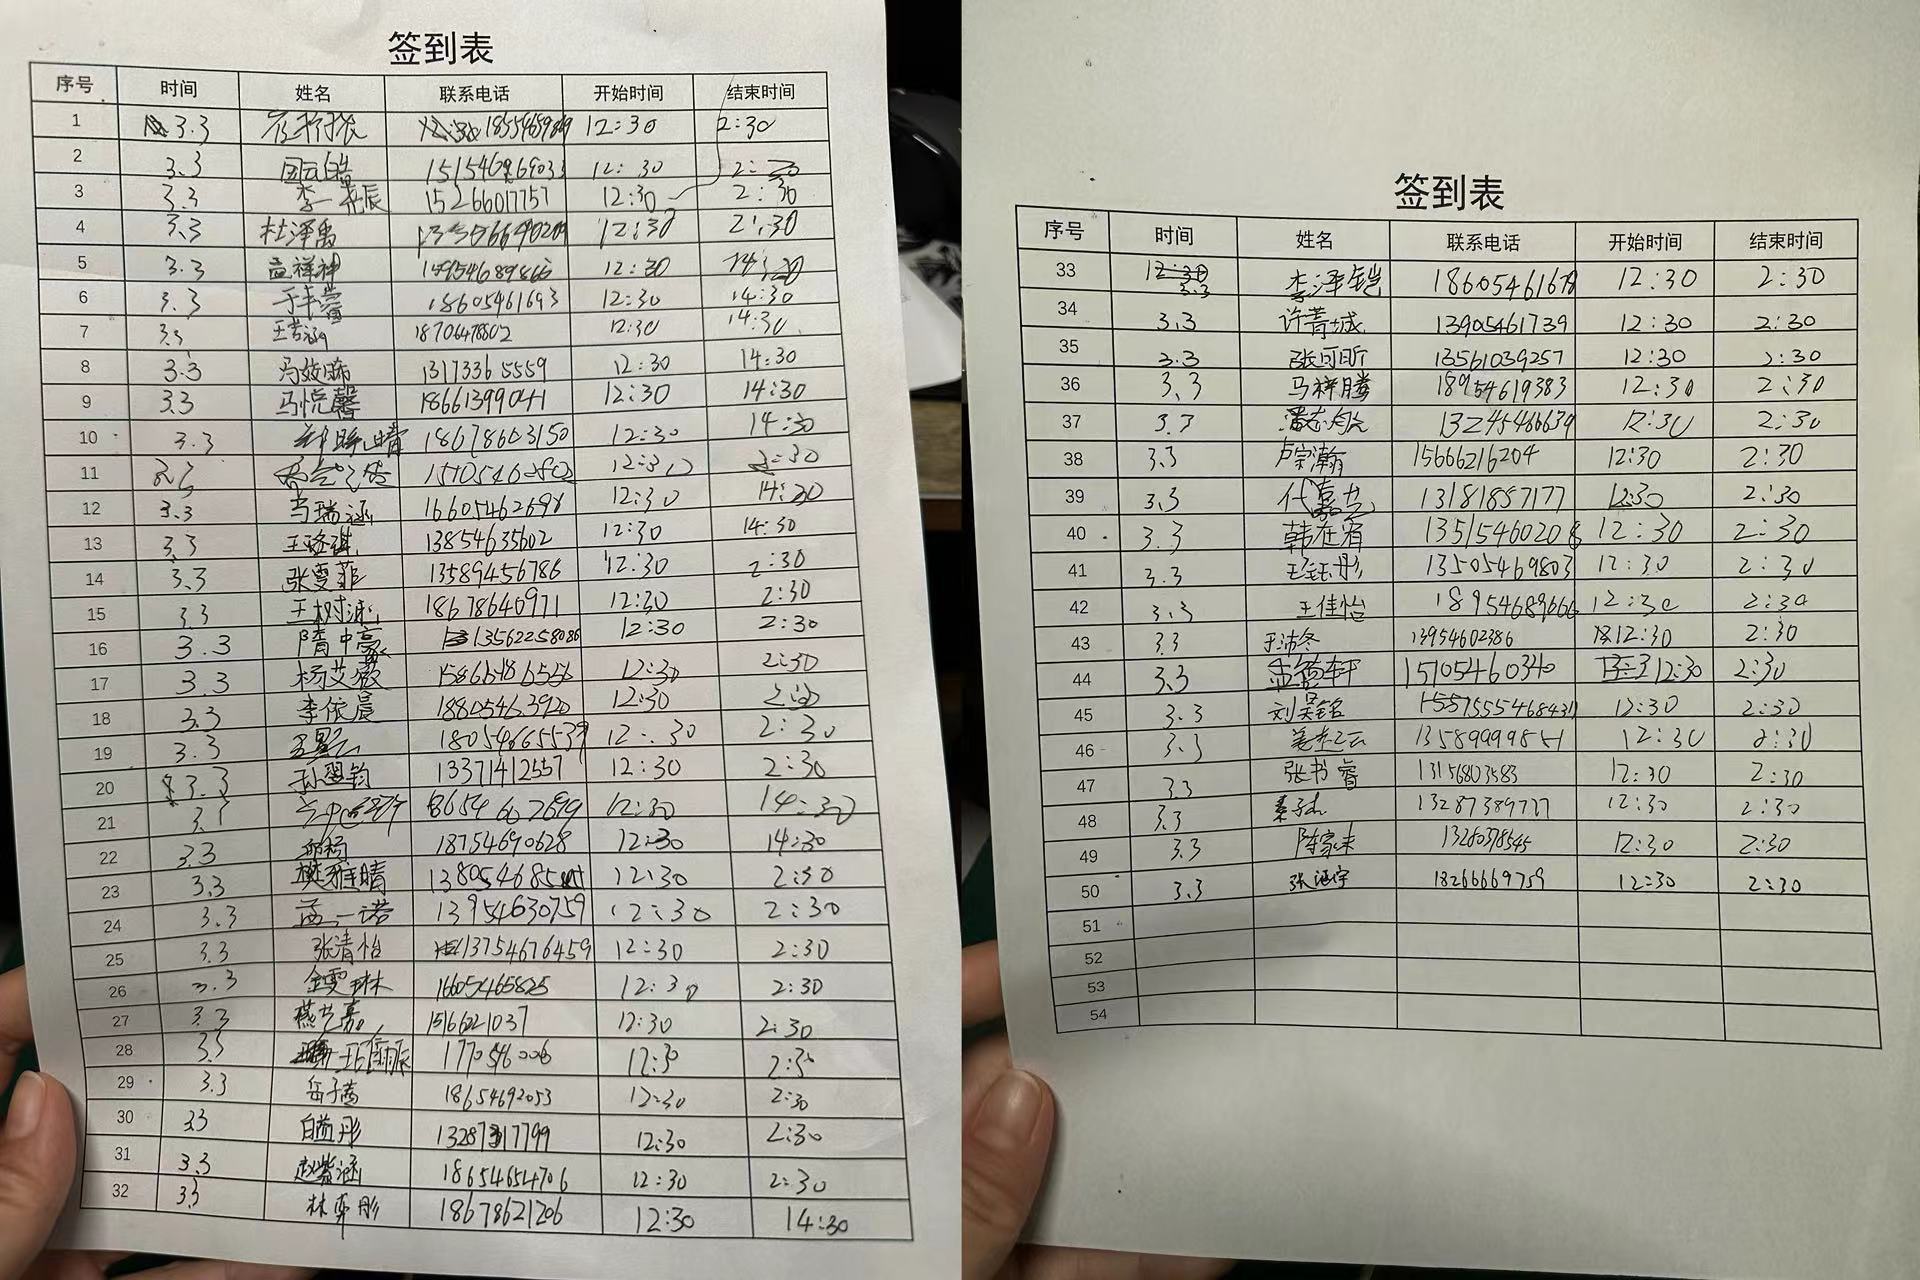 签到表
序号 时间 姓名 联系电话 开始时间 结束时间
1 3.3 12:30 2:30
2 3.3 12:30 2:30
3 3.3 李一晨辰 15266017757 12:30 2:30
4 3.3 杜泽禹 12:30 2:30
5 3.3 孟祥神 12:30 14:30
6 3.3 18605461693 12:30 14:30
7 3.3 18706478802 12:30 14:30
8 3.3 13173365559 12:30 14:30
9 3.3 马悦馨 18661399041 12:30 14:30
10 3.3 18678603150 12:30 14:30
11 12:30 2:30
12 3.3 马瑞涵 16605462698 12:30 14:30
13 3.3 13854635602 12:30 14:30
14 3.3 张雯菲 13589456786 12:30 2:30
15 3.3 18678640971 12:30 2:30
16 3.3 隋中豪 13562258086 12:30 2:30
17 3.3 杨艾薇 12:30 2:30
18 3.3 李依晨 18805463920 12:30 2:30
19 3.3 18054665539 12:30 2:30
20 3.3 13371412557 12:30 2:30
21 12:30 14:30
22 3.3 18754690628 12:30 14:30
23 3.3 樊雅晴 12:30 2:30
24 3.3 孟一诺 13954630759 12:30 2:30
25 3.3 张清怡 13754676459 12:30 2:30
26 3.3 金雯琳 16605465825 12:30 2:30
27 3.3 燕艺嘉 1516621037 12:30 2:30
28 12:30 2:30
29 3.3 岳子茜 18654692053 12:30 2:30
30 3.3 12:30 2:30
31 3.3 赵紫涵 18654654706 12:30 2:30
32 3.3 林奕彤 18678621206 12:30 14:30
签到表
序号 时间 姓名 联系电话 开始时间 结束时间
33 3.3 李泽铠 12:30 2:30
34 3.3 许菁城 13905461739 12:30 2:30
35 3.3 张可昕 13561039257 12:30 2:30
36 3.3 马祥腾 18954619383 12:30 2:30
37 3.3 13245486639 12:30 2:30
38 3.3 卢宗瀚 15666216204 12:30 2:30
39 3.3 代嘉艺 13181857177 12:30 2:30
40 3.3 韩在宥 13515460208 12:30 2:30
41 3.3 王钰彤 13505469803 12:30 2:30
42 3.3 王佳怡 18954689666 12:30 2:30
43 3.3 于沛冬 13954602386 12:30 2:30
44 3.3 孟德轩 15105460340 12:30 2:30
45 3.3 刘昊铭 12:30 2:30
46 3.3 12:30 2:30
47 3.3 张书睿 13156803583 12:30 2:30
48 3.3 秦子杰 13287389777 12:30 2:30
49 3.3 陈家未 12:30 2:30
50 3.3 张涵宇 18266669759 12:30 2:30
51
52
53
54